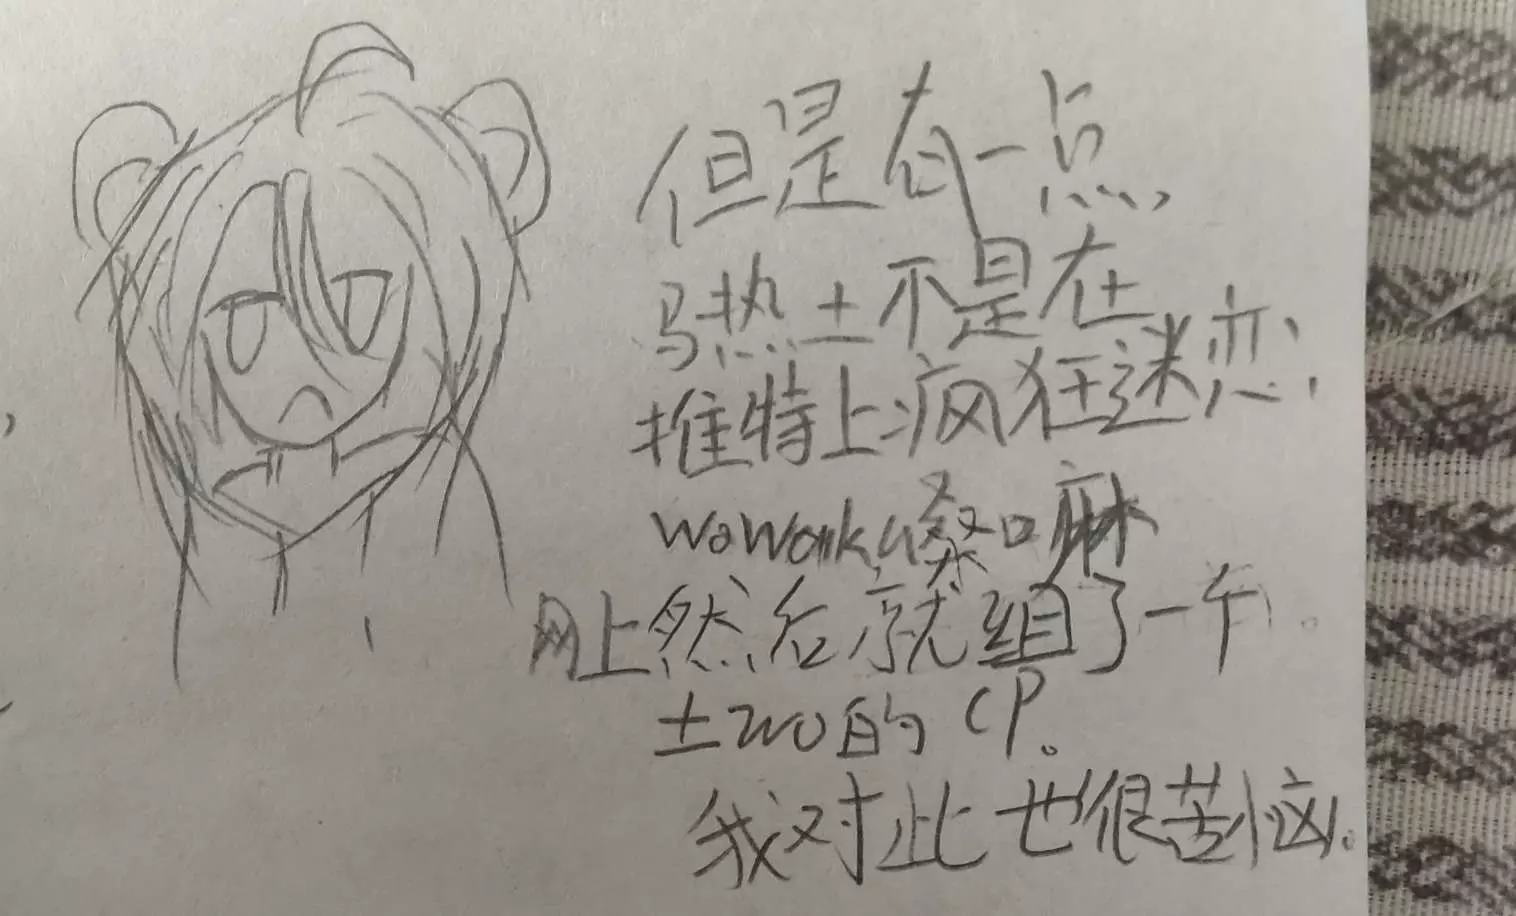 但是有一点,
马热土不是在
推特上疯狂迷恋
wowaka桑嘛
网上然后就组了一个
土wo的CP。
我对此也很苦恼。